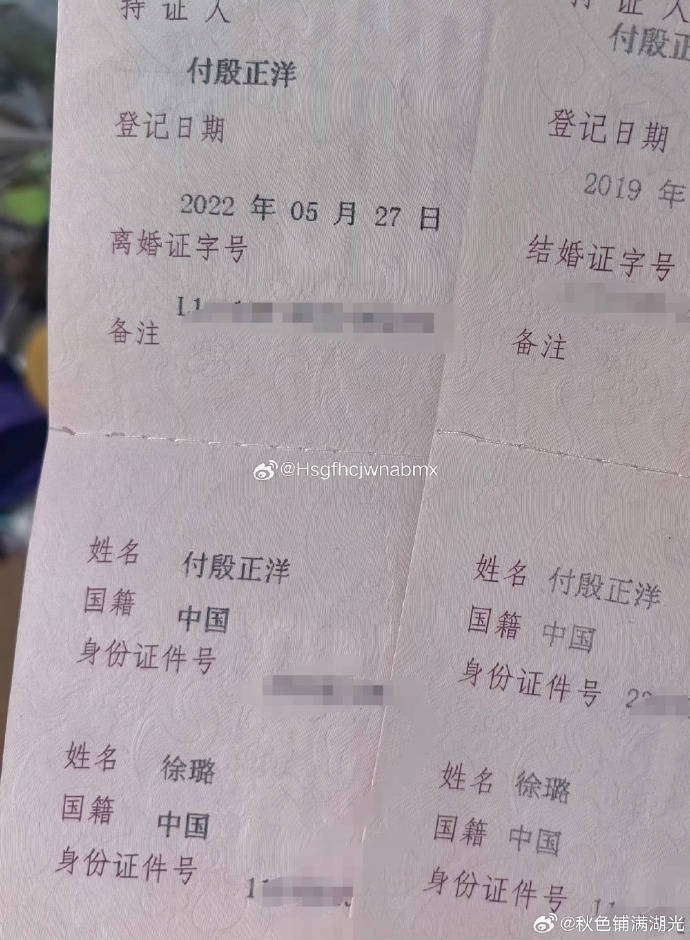 持证人
付殷正洋
登记日期
2022 年 05 月 27 日
离婚证字号
L1
备注
姓名 付殷正洋
国籍 中国
身份证件号
姓名 徐璐
国籍 中国
身份证件号
11
持证人
付殷正
登记日期
2019 年
结婚证字号
备注
姓名 付殷正洋
国籍 中国
身份证件号 22
姓名 徐璐
国籍 中国
身份证件号 11
@Hsgfhcjwnabmx
@秋色铺满湖光